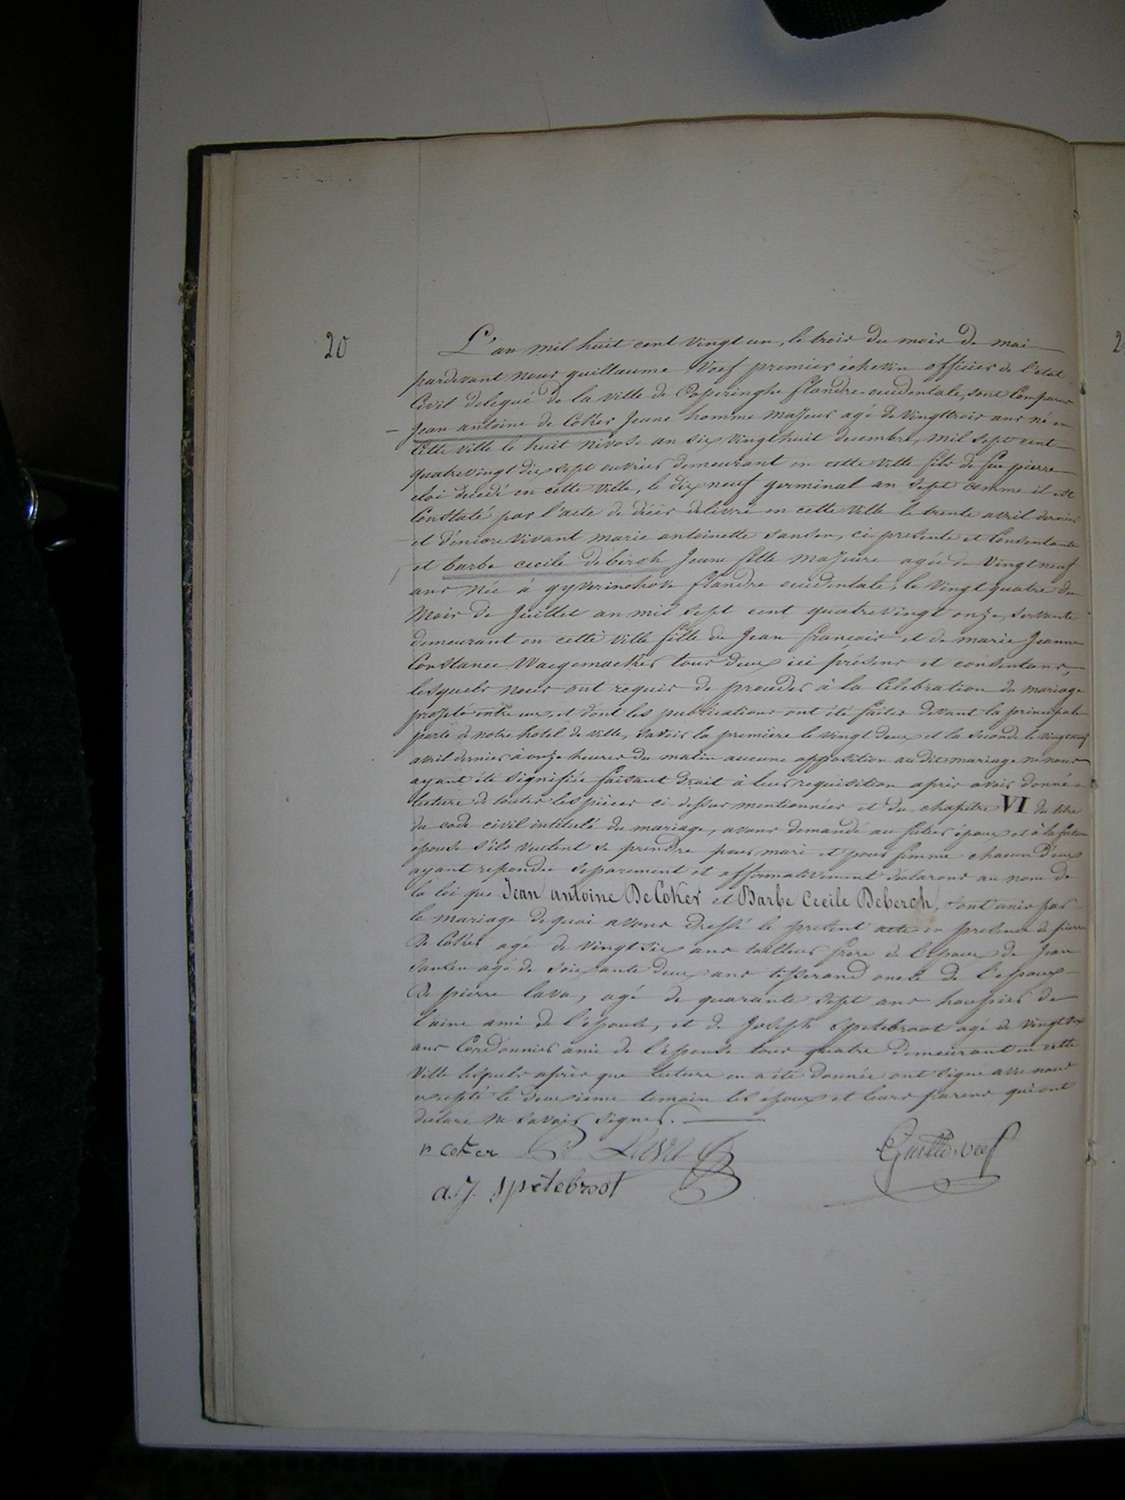 20
L'an mil huit cent vingt un, le trois du mois de mai
pardevant nous guillaume Veef premier échevin officier de l'état
Civil delegué de la ville de Poperinghe flandre occidentale, sont Comparus
Jean antoine de Coker Jeune homme majeur agé de vingttrois ans né en
cette ville le huit nivose an six vingthuit decembre, mil sept cent
quatrevingt dix sept ouvrier demeurant en cette ville fils de feu pierre
eloi decedé en cette ville, le dix neuf germinal an sept comme il est
Constaté par l'acte de décès delivré en cette ville le trente avril dernier
et d'encore vivant marie antoinette Sansen, ci presente et Consentante
et barbe cecile deberch Jeune fille majeure agée de vingt neuf
ans née à gyverinchove flandre occidentale, le vingt quatre du
mois de Juillet an mil sept cent quatrevingt onze, servante
demeurant en cette ville fille de Jean francois et de marie Jeanne
Constance Waegemacker tous deux ici présens et consentans,
lesquels nous ont requis de proceder à la Celebration du mariage
projeté entre eux, et dont les publications ont été faites devant la principale
porte de notre hotel de ville, savoir la premiere le vingt deux et la seconde le vingtneuf
avril dernier à onze heures du matin aucune opposition au dit mariage ne nous
ayant été signifiée faisant droit à leur requisition apres avoir donné
lecture de toutes les pièces ci dessus mentionnées et du chapitre VI du titre
du code civil intitulé du mariage, avons demandé au futur époux et à la future
epouse s'ils veulent se prendre pour mari et pour femme chacun d'eux
ayant repondu separement et affirmativement declarons au nom de
la loi que Jean antoine De Coker et Barbe Cecile Deberch, sont unis par
le mariage de quoi avons dressé le present acte en presence de pierre
De Coker agé de vingt six ans tailleur frere de l'epoux de Jean
Sansen agé de soixante deux ans tisserand oncle de l'epoux
De pierre Lava, agé de quarante sept ans houpier de
laine ami de l'épouse, et de Joseph Spetebroot agé de vingt six
ans Cordonnier ami de l'épouse tous quatre demeurant en cette
Ville lesquels après que lecture en a été donnée ont signé avec nous
excepté le deuxieme temoin les epoux et leurs parens qui ont
declaré ne savoir signer.
Lava
a. J. Spetebroot
Guille Veef